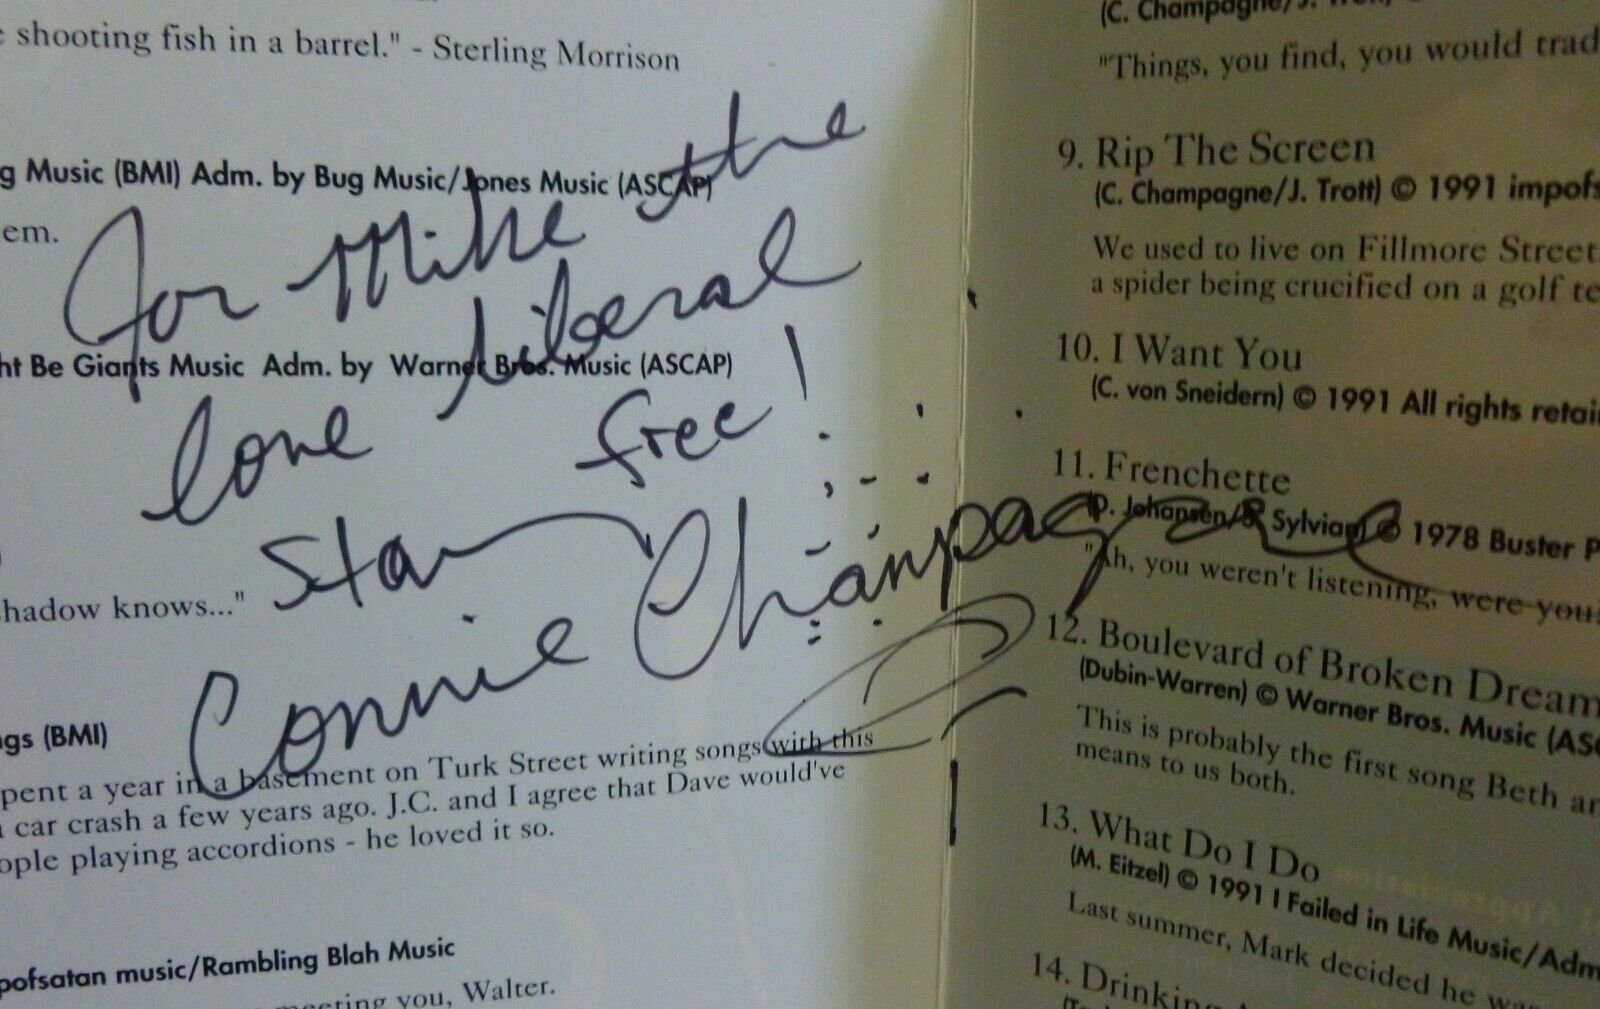 shooting fish in a barrel." - Sterling Morrison
g Music (BMI) Adm. by Bug Music/Jones Music (ASCAP)
em.
For Mike the
Liberal
ht Be Giants Music Adm. by Warner Bros. Music (ASCAP)
love
free!
Stay
hadow knows..."
Connie Champagne
ngs (BMI)
pent a year in a basement on Turk Street writing songs with this
car crash a few years ago. J.C. and I agree that Dave would've
ople playing accordions - he loved it so.
pofsatan music/Rambling Blah Music
meeting you, Walter.
(C. Champagne/J. Trott)
"Things, you find, you would trad
9. Rip The Screen
(C. Champagne/J. Trott) © 1991 impofs
We used to live on Fillmore Street
a spider being crucified on a golf te
10. I Want You
(C. von Sneidern) © 1991 All rights retai
11. Frenchette
(D. Johansen/S. Sylvian) © 1978 Buster P
"Ah, you weren't listening, were you
12. Boulevard of Broken Dream
(Dubin-Warren) © Warner Bros. Music (AS
This is probably the first song Beth an
means to us both.
13. What Do I Do
(M. Eitzel) © 1991 I Failed in Life Music/Adm
Last summer, Mark decided he wa
14. Drinking